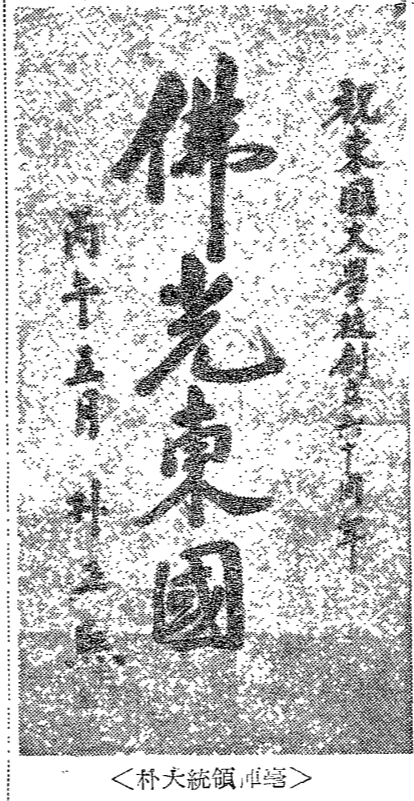 祝東國大學校創立六十周年
佛光東國
丙午五月 朴正熙
＜朴大統領揮毫＞